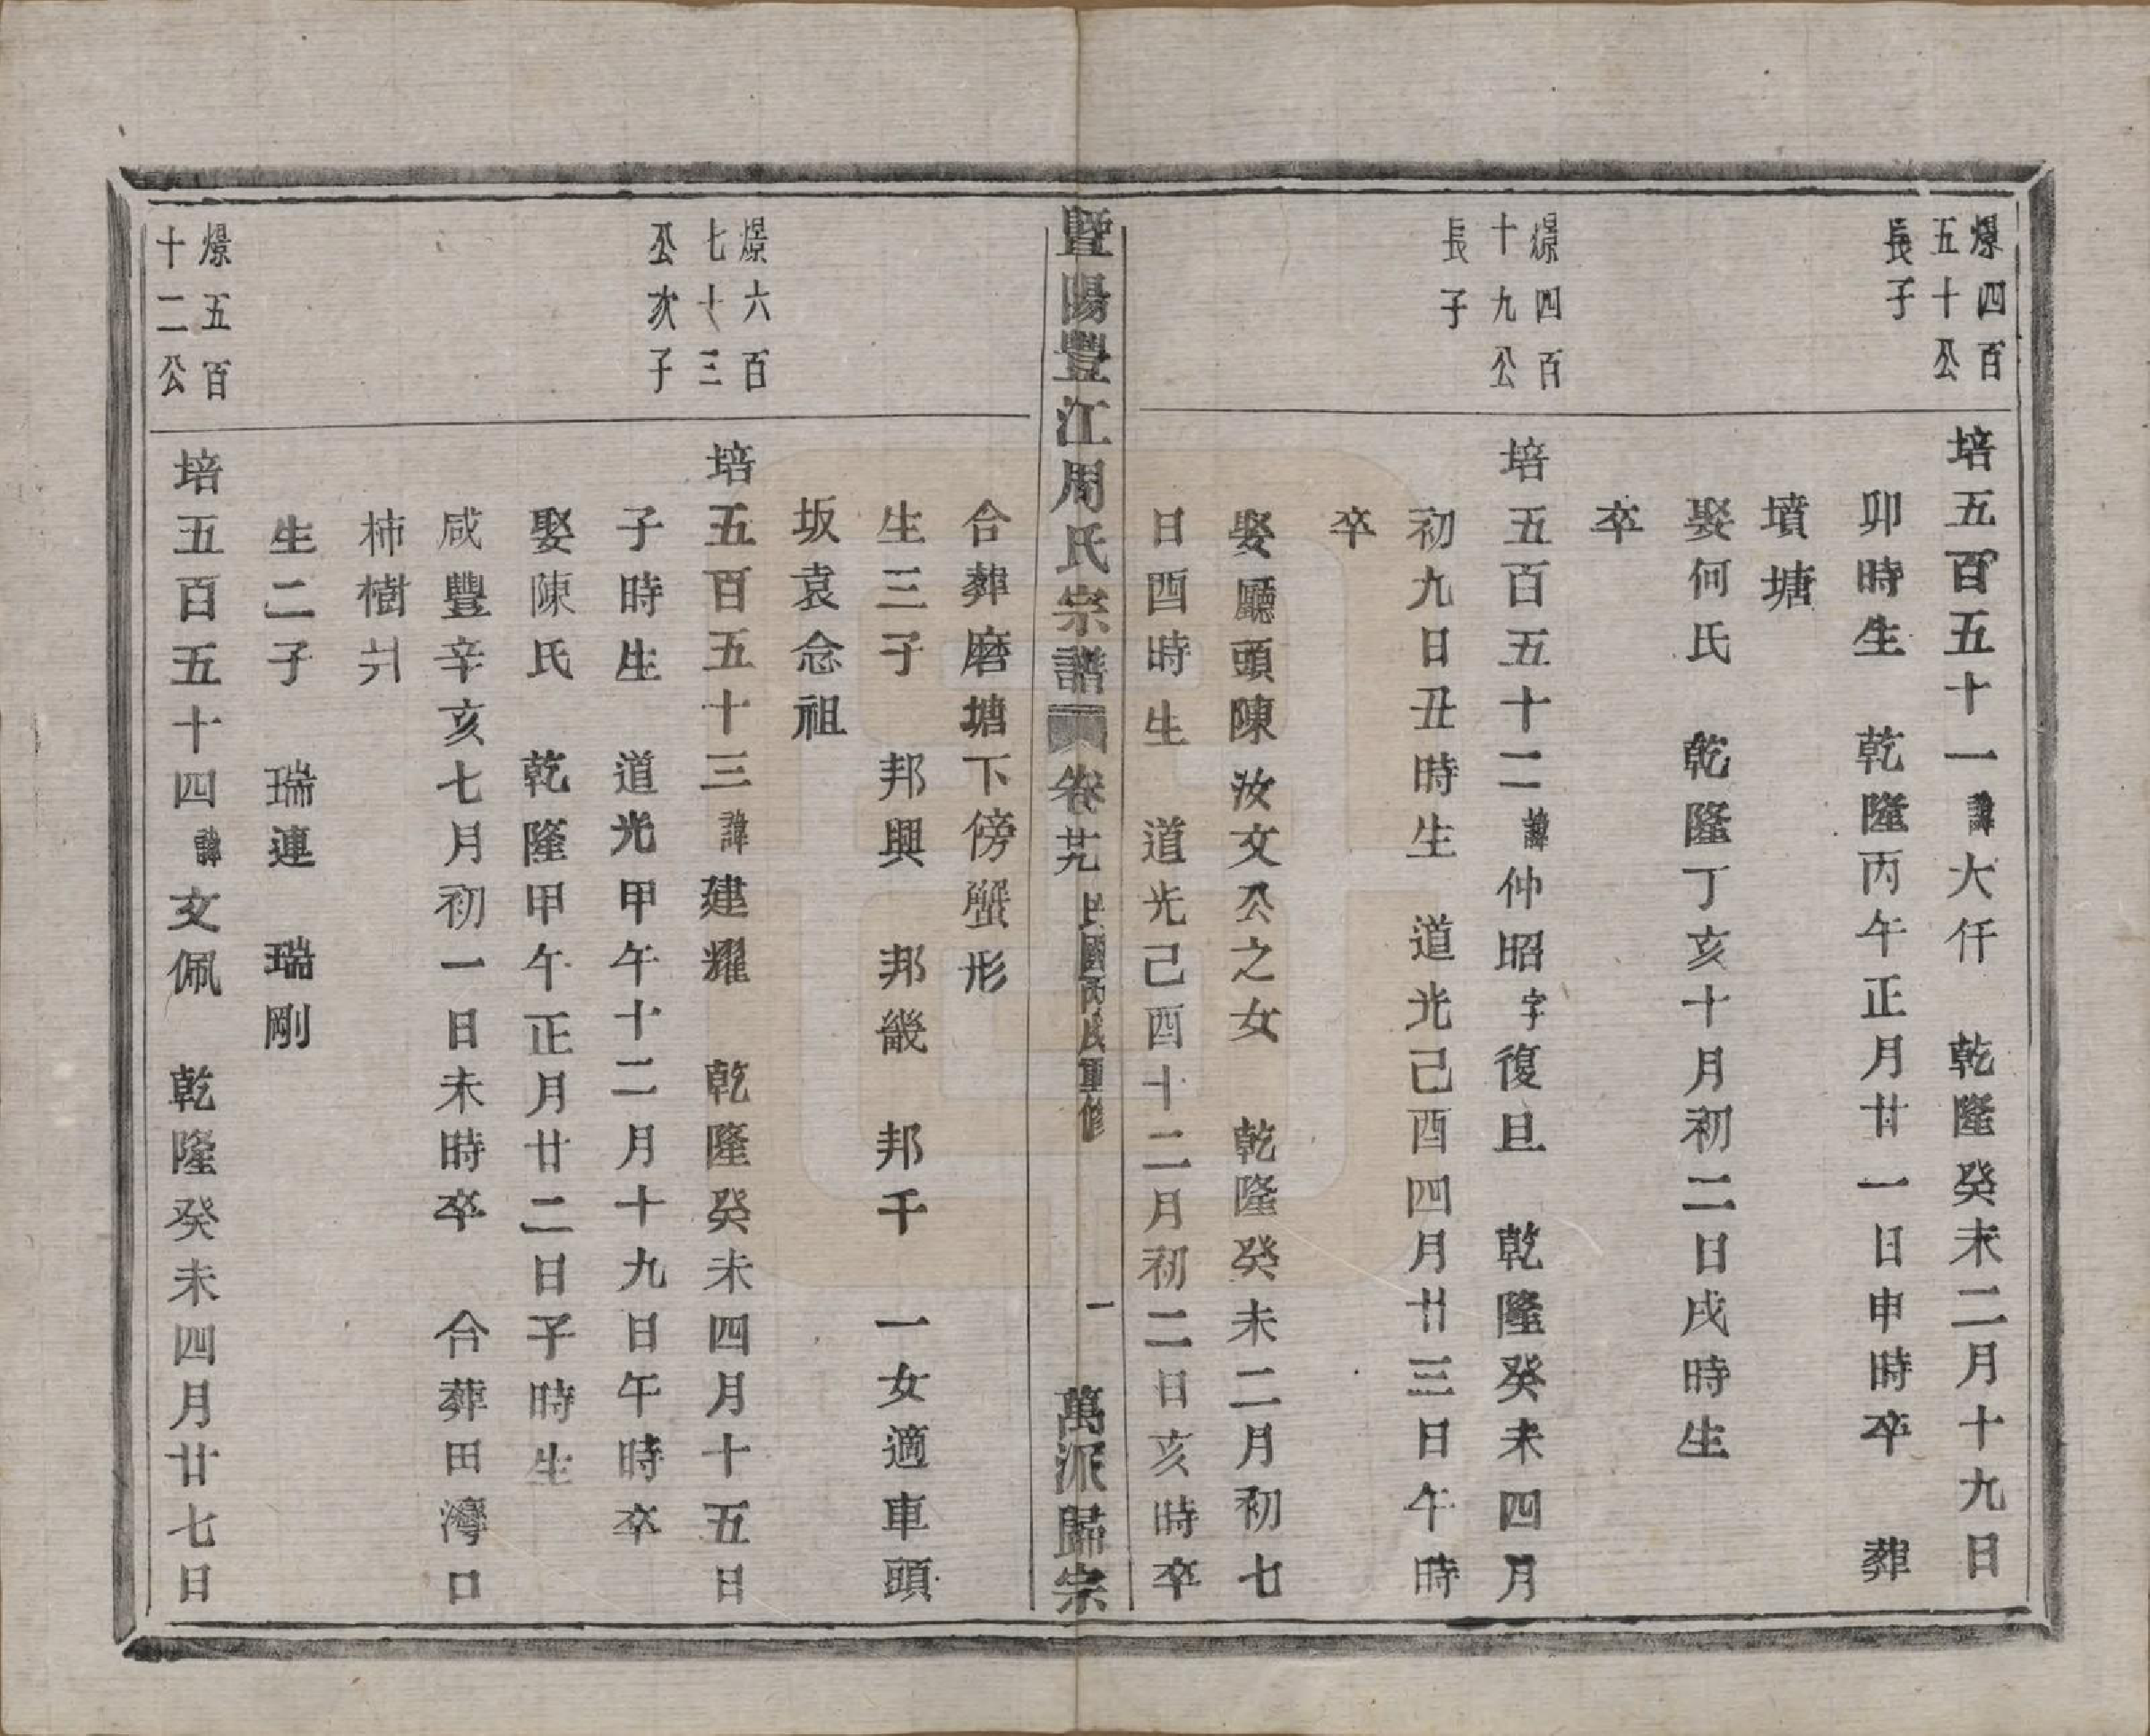 爆四百
五十公
長子
培五百五十一諱大仟　乾隆癸未二月十九日
卯時生　乾隆丙午正月廿一日申時卒　葬
墳塘
娶何氏　乾隆丁亥十月初二日戌時生
卒
爆四百
十九公
長子
培五百五十二諱仲昭字復旦　乾隆癸未四月
初九日丑時生　道光己酉四月廿三日午時
卒
娶廳頭陳汝文公之女　乾隆癸未二月初七
日酉時生　道光己酉十二月初二日亥時卒
暨陽豐江周氏宗譜　卷廿九　民國丙戌重修　一　萬派歸宗
合葬磨塘下傍蟹形
生三子　邦興　邦畿　邦千　一女適車頭
坂袁念祖
爆六百
七十三
公次子
培五百五十三諱建耀　乾隆癸未四月十五日
子時生　道光甲午十二月十九日午時卒
娶陳氏　乾隆甲午正月廿二日子時生
咸豐辛亥七月初一日未時卒　合葬田灣口
柿樹爿
生二子　瑞連　瑞剛
爆五百
十二公
培五百五十四諱文佩　乾隆癸未四月廿七日